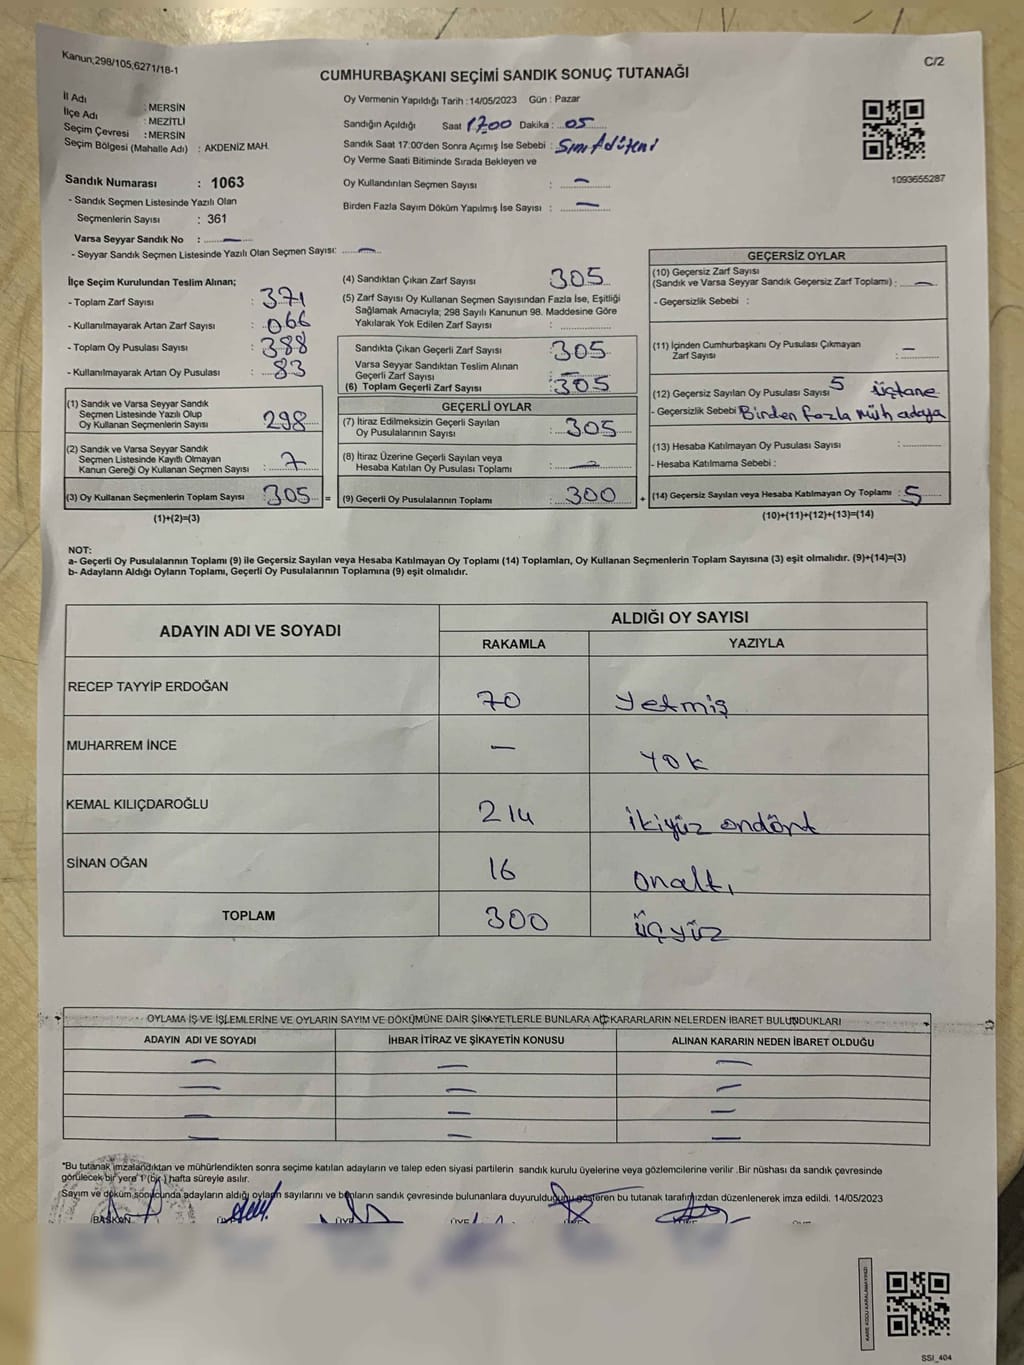 Kanun;298/105,6271/18-1
C/2
CUMHURBAŞKANI SEÇİMİ SANDIK SONUÇ TUTANAĞI
İl Adı : MERSİN
İlçe Adı : MEZİTLİ
Seçim Çevresi : MERSİN
Seçim Bölgesi (Mahalle Adı) : AKDENİZ MAH.
Sandık Numarası : 1063
- Sandık Seçmen Listesinde Yazılı Olan
Seçmenlerin Sayısı : 361
Varsa Seyyar Sandık No : —
- Seyyar Sandık Seçmen Listesinde Yazılı Olan Seçmen Sayısı: —
Oy Vermenin Yapıldığı Tarih : 14/05/2023 Gün : Pazar
Sandığın Açıldığı Saat 1700 Dakika : 05
Sandık Saat 17.00'den Sonra Açımış İse Sebebi :
Oy Verme Saati Bitiminde Sırada Bekleyen ve
Oy Kullandırılan Seçmen Sayısı : —
Birden Fazla Sayım Döküm Yapılmış İse Sayısı : —
1093655287
İlçe Seçim Kurulundan Teslim Alınan;
- Toplam Zarf Sayısı : 371
- Kullanılmayarak Artan Zarf Sayısı : 066
- Toplam Oy Pusulası Sayısı : 388
- Kullanılmayarak Artan Oy Pusulası : 83
(1) Sandık ve Varsa Seyyar Sandık
Seçmen Listesinde Yazılı Olup
Oy Kullanan Seçmenlerin Sayısı : 298
(2) Sandık ve Varsa Seyyar Sandık
Seçmen Listesinde Kayıtlı Olmayan
Kanun Gereği Oy Kullanan Seçmen Sayısı : 7
(3) Oy Kullanan Seçmenlerin Toplam Sayısı : 305 =
(1)+(2)=(3)
(4) Sandıktan Çıkan Zarf Sayısı : 305
(5) Zarf Sayısı Oy Kullanan Seçmen Sayısından Fazla İse, Eşitliği
Sağlamak Amacıyla; 298 Sayılı Kanunun 98. Maddesine Göre
Yakılarak Yok Edilen Zarf Sayısı :
Sandıkta Çıkan Geçerli Zarf Sayısı : 305
Varsa Seyyar Sandıktan Teslim Alınan
Geçerli Zarf Sayısı : —
(6) Toplam Geçerli Zarf Sayısı : 305
GEÇERLİ OYLAR
(7) İtiraz Edilmeksizin Geçerli Sayılan
Oy Pusulalarının Sayısı : 305
(8) İtiraz Üzerine Geçerli Sayılan veya
Hesaba Katılan Oy Pusulası Toplamı :
(9) Geçerli Oy Pusulalarının Toplamı : 300 +
GEÇERSİZ OYLAR
(10) Geçersiz Zarf Sayısı
(Sandık ve Varsa Seyyar Sandık Geçersiz Zarf Toplamı) : —
- Geçersizlik Sebebi :
(11) İçinden Cumhurbaşkanı Oy Pusulası Çıkmayan
Zarf Sayısı : —
(12) Geçersiz Sayılan Oy Pusulası Sayısı 5
- Geçersizlik Sebebi Birden fazla müh adaya
(13) Hesaba Katılmayan Oy Pusulası Sayısı :
- Hesaba Katılmama Sebebi :
(14) Geçersiz Sayılan veya Hesaba Katılmayan Oy Toplamı : 5
(10)+(11)+(12)+(13)=(14)
NOT:
a- Geçerli Oy Pusulalarının Toplamı (9) ile Geçersiz Sayılan veya Hesaba Katılmayan Oy Toplamı (14) Toplamları, Oy Kullanan Seçmenlerin Toplam Sayısına (3) eşit olmalıdır. (9)+(14)=(3)
b- Adayların Aldığı Oyların Toplamı, Geçerli Oy Pusulalarının Toplamına (9) eşit olmalıdır.
ADAYIN ADI VE SOYADI
ALDIĞI OY SAYISI
RAKAMLA YAZIYLA
RECEP TAYYİP ERDOĞAN 70 Yetmiş
MUHARREM İNCE — YOK
KEMAL KILIÇDAROĞLU 214 ikiyüz ondört
SİNAN OĞAN 16 onaltı
TOPLAM 300 üçyüz
OYLAMA İŞ VE İŞLEMLERİNE VE OYLARIN SAYIM VE DÖKÜMÜNE DAİR ŞİKAYETLERLE BUNLARA AİT KARARLARIN NELERDEN İBARET BULUNDUKLARI
ADAYIN ADI VE SOYADI İHBAR İTİRAZ VE ŞİKAYETİN KONUSU ALINAN KARARIN NEDEN İBARET OLDUĞU
— — —
— — —
— — —
— — —
"Bu tutanak imzalandıktan ve mühürlendikten sonra seçime katılan adayların ve talep eden siyasi partilerin sandık kurulu üyelerine veya gözlemcilerine verilir .Bir nüshası da sandık çevresinde
görülecek bir yere 1 (bir ) hafta süreyle asılır.
Sayım ve döküm sonucunda adayların aldığı oyların sayılarını ve bunların sandık çevresinde bulunanlara duyurulduğunu gösteren bu tutanak tarafımızdan düzenlenerek imza edildi. 14/05/2023
BAŞKAN ÜYE ÜYE ÜYE
KARE KODU KARALAMAYINIZ!
SSI_404